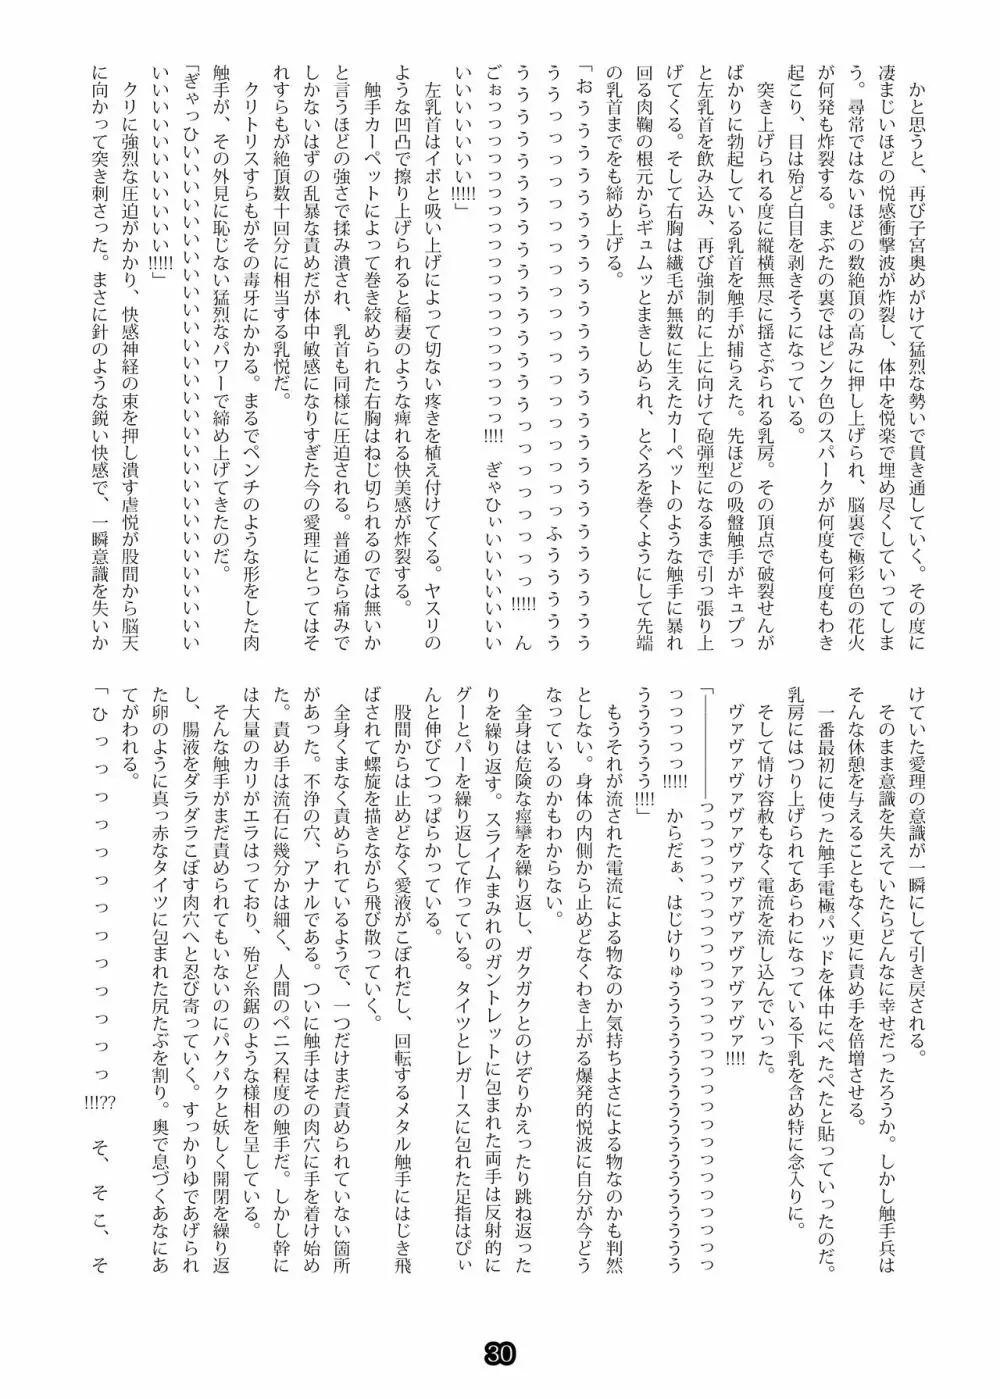 かと思うと、再び子宮奥めがけて猛烈な勢いで貫き通していく。その度に
凄まじいほどの悦感衝撃波が炸裂し、体中を悦楽で埋め尽くしていってしま
う。尋常ではないほどの数絶頂の高みに押し上げられ、脳裏で極彩色の花火
が何発も炸裂する。まぶたの裏ではピンク色のスパークが何度も何度もわき
起こり、目は殆ど白目を剥きそうになっている。
突き上げられる度に縦横無尽に揺さぶられる乳房。その頂点で破裂せんが
ばかりに勃起している乳首を触手が捕らえた。先ほどの吸盤触手がキュプっ
と左乳首を飲み込み、再び強制的に上に向けて砲弾型になるまで引っ張り上
げてくる。そして右胸は繊毛が無数に生えたカーペットのような触手に暴れ
回る肉鞠の根元からギュムッとまきしめられ、とぐろを巻くようにして先端
の乳首までをも締め上げる。
「おぅうううううううううううううううううう
ううっっっっっっっっっっっっっっふぅうううう
うううううううううううっっっっっっっ!!!!! ん
ごぉっっっっっっっっっっっっっ!!!! ぎゃひぃいいいいいい
いいいいいいい!!!!!」
左乳首はイボと吸い上げによって切ない疼きを植え付けてくる。ヤスリの
ような凹凸で擦り上げられると稲妻のような痺れる快美感が炸裂する。
触手カーペットによって巻き絞められた右胸はねじ切られるのでは無いか
と言うほどの強さで揉み潰され、乳首も同様に圧迫される。普通なら痛みで
しかないはずの乱暴な責めだが体中敏感になりすぎた今の愛理にとってはそ
れすらもが絶頂数十回分に相当する乳悦だ。
クリトリスすらもがその毒牙にかかる。まるでペンチのような形をした肉
触手が、その外見に恥じない猛烈なパワーで締め上げてきたのだ。
「ぎゃっひいいいいいいいいいいいいいいいいいいいいいい
いいいいいいいいいい!!!!!」
クリに強烈な圧迫がかかり、快感神経の束を押し潰す虐悦が股間から脳天
に向かって突き刺さった。まさに針のような鋭い快感で、一瞬意識を失いか
けていた愛理の意識が一瞬にして引き戻される。
そのまま意識を失えていたらどんなに幸せだったろうか。しかし触手兵は
そんな休憩を与えることもなく更に責め手を倍増させる。
一番最初に使った触手電極パッドを体中にぺたぺたと貼っていったのだ。
乳房にはつり上げられてあらわになっている下乳を含め特に念入りに。
そして情け容赦もなく電流を流し込んでいった。
ヴァヴァヴァヴァヴァヴァヴァヴァヴァヴァ!!!!
「――――――っっっっっっっっっっっっっっっっっっ
っっっっっ!!!!! からだぁ、はじけりゅううううううううううう
ううううううう!!!!」
もうそれが流された電流による物なのか気持ちよさによる物なのかも判然
としない。身体の内側から止めどなくわき上がる爆発的悦波に自分が今どう
なっているのかもわからない。
全身は危険な痙攣を繰り返し、ガクガクとのけぞりかえったり跳ね返った
りを繰り返す。スライムまみれのガントレットに包まれた両手は反射的に
グーとパーを繰り返して作っている。タイツとレガースに包れた足指はぴぃ
んと伸びてつっぱらかっている。
股間からは止めどなく愛液がこぼれだし、回転するメタル触手にはじき飛
ばされて螺旋を描きながら飛び散っていく。
全身くまなく責められているようで、一つだけまだ責められていない箇所
があった。不浄の穴、アナルである。ついに触手はその肉穴に手を着け始め
た。責め手は流石に幾分かは細く、人間のペニス程度の触手だ。しかし幹に
は大量のカリがエラはっており、殆ど糸鋸のような様相を呈している。
そんな触手がまだ責められてもいないのにパクパクと妖しく開閉を繰り返
し、腸液をダラダラこぼす肉穴へと忍び寄っていく。すっかりゆであげられ
た卵のように真っ赤なタイツに包まれた尻たぶを割り。奥で息づくあなにあ
てがわれる。
「ひっっっっっっっっっっっっ!!!?? そ、そこ、そ
30